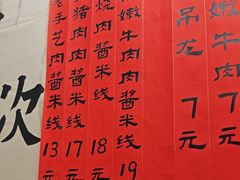 欢
手艺肉酱米线13元
猪肉肉酱米线17元
肉酱米线18元
嫩牛肉肉酱米线19
吊龙7元
嫩牛肉7元